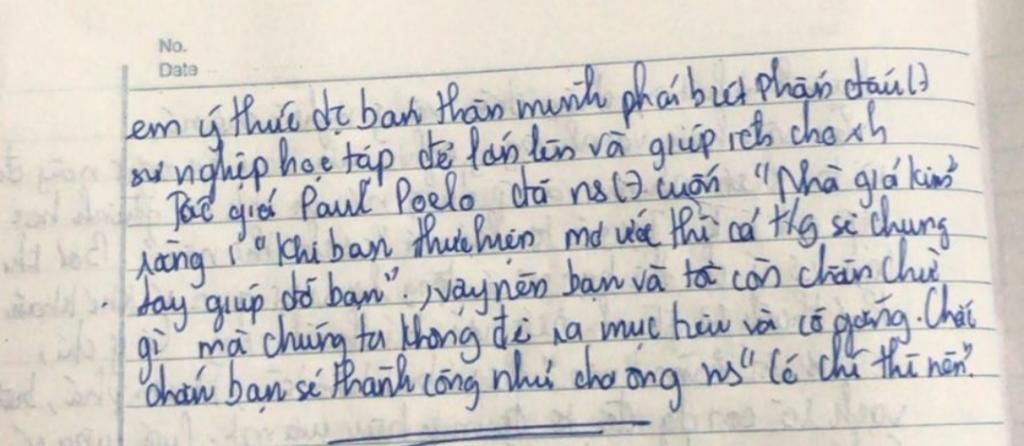 No.
Date
em ý thức đc bản thân mình phải biết phấn đấu (-)
sự nghiệp học tập để lớn lên và giúp ích cho xh
Tác giả Paul Poelo đã ns (-) cuốn "Nhà giả kim"
rằng : "Khi bạn thực hiện mơ ước thì cả tg sẽ chung
tay giúp đỡ bạn"., vậy nên bạn và tôi còn chần chừ
gì mà chúng ta không đề ra mục tiêu và cố gắng. Chắc
chắn bạn sẽ thành công như cha ông ns "Có chí thì nên".